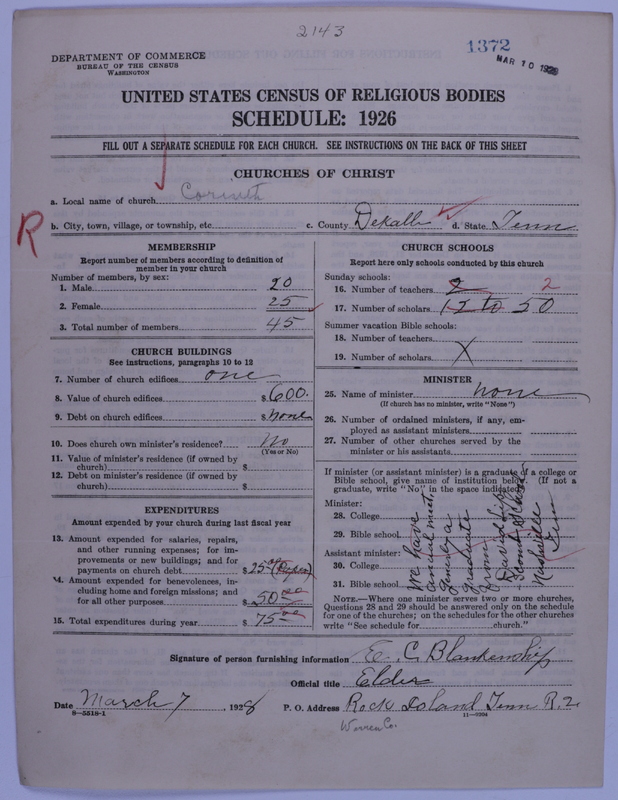 2143
1372
MAR 10 1928
DEPARTMENT OF COMMERCE
BUREAU OF THE CENSUS
WASHINGTON
UNITED STATES CENSUS OF RELIGIOUS BODIES
SCHEDULE: 1926
FILL OUT A SEPARATE SCHEDULE FOR EACH CHURCH. SEE INSTRUCTIONS ON THE BACK OF THIS SHEET
CHURCHES OF CHRIST
a. Local name of church Corinth
R
b. City, town, village, or township, etc. c. County Dekalb d. State Tenn
MEMBERSHIP
Report number of members according to definition of
member in your church
Number of members, by sex:
1. Male 20
2. Female 25
3. Total number of members 45
CHURCH BUILDINGS
See instructions, paragraphs 10 to 12
7. Number of church edifices one
8. Value of church edifices $600.
9. Debt on church edifices $none
10. Does church own minister's residence? No
(Yes or No)
11. Value of minister's residence (if owned by
church) $
12. Debt on minister's residence (if owned by
church) $
EXPENDITURES
Amount expended by your church during last fiscal year
13. Amount expended for salaries, repairs,
and other running expenses; for im-
provements or new buildings; and for
payments on church debt $25
14. Amount expended for benevolences, in-
cluding home and foreign missions; and
for all other purposes $50 00
15. Total expenditures during year $75 00
CHURCH SCHOOLS
Report here only schools conducted by this church
Sunday schools:
16. Number of teachers 2 2
17. Number of scholars 12 to 50
Summer vacation Bible schools:
18. Number of teachers
19. Number of scholars X
MINISTER
25. Name of minister none
(If church has no minister, write "None")
26. Number of ordained ministers, if any, em-
ployed as assistant ministers
27. Number of other churches served by the
minister or his assistants
If minister (or assistant minister) is a graduate of a college or
Bible school, give name of institution below. (If not a
graduate, write "No" in the space indicated)
Minister:
28. College
29. Bible school
Assistant minister:
30. College
31. Bible school
We have
anual meet,
generly a
graduate
from
David Lips
Nashville
Tenn
NOTE.—Where one minister serves two or more churches,
Questions 28 and 29 should be answered only on the schedule
for one of the churches; on the schedules for the other churches
write "See schedule for church."
Signature of person furnishing information E. C. Blankenship
Official title Elder
Date March 7, 1928 P. O. Address Rock Island Tenn R. 2
8—5518-1 11—9204
Warren Co.